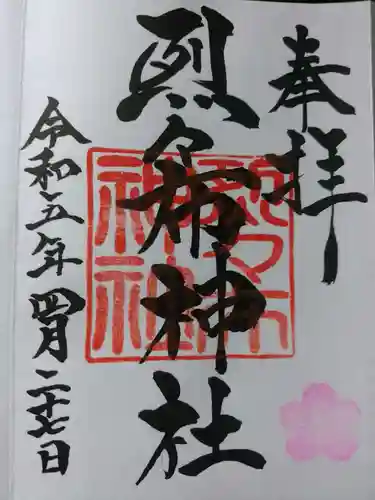 奉拝
烈々布神社
令和五年四月二十七日
烈々布
神社